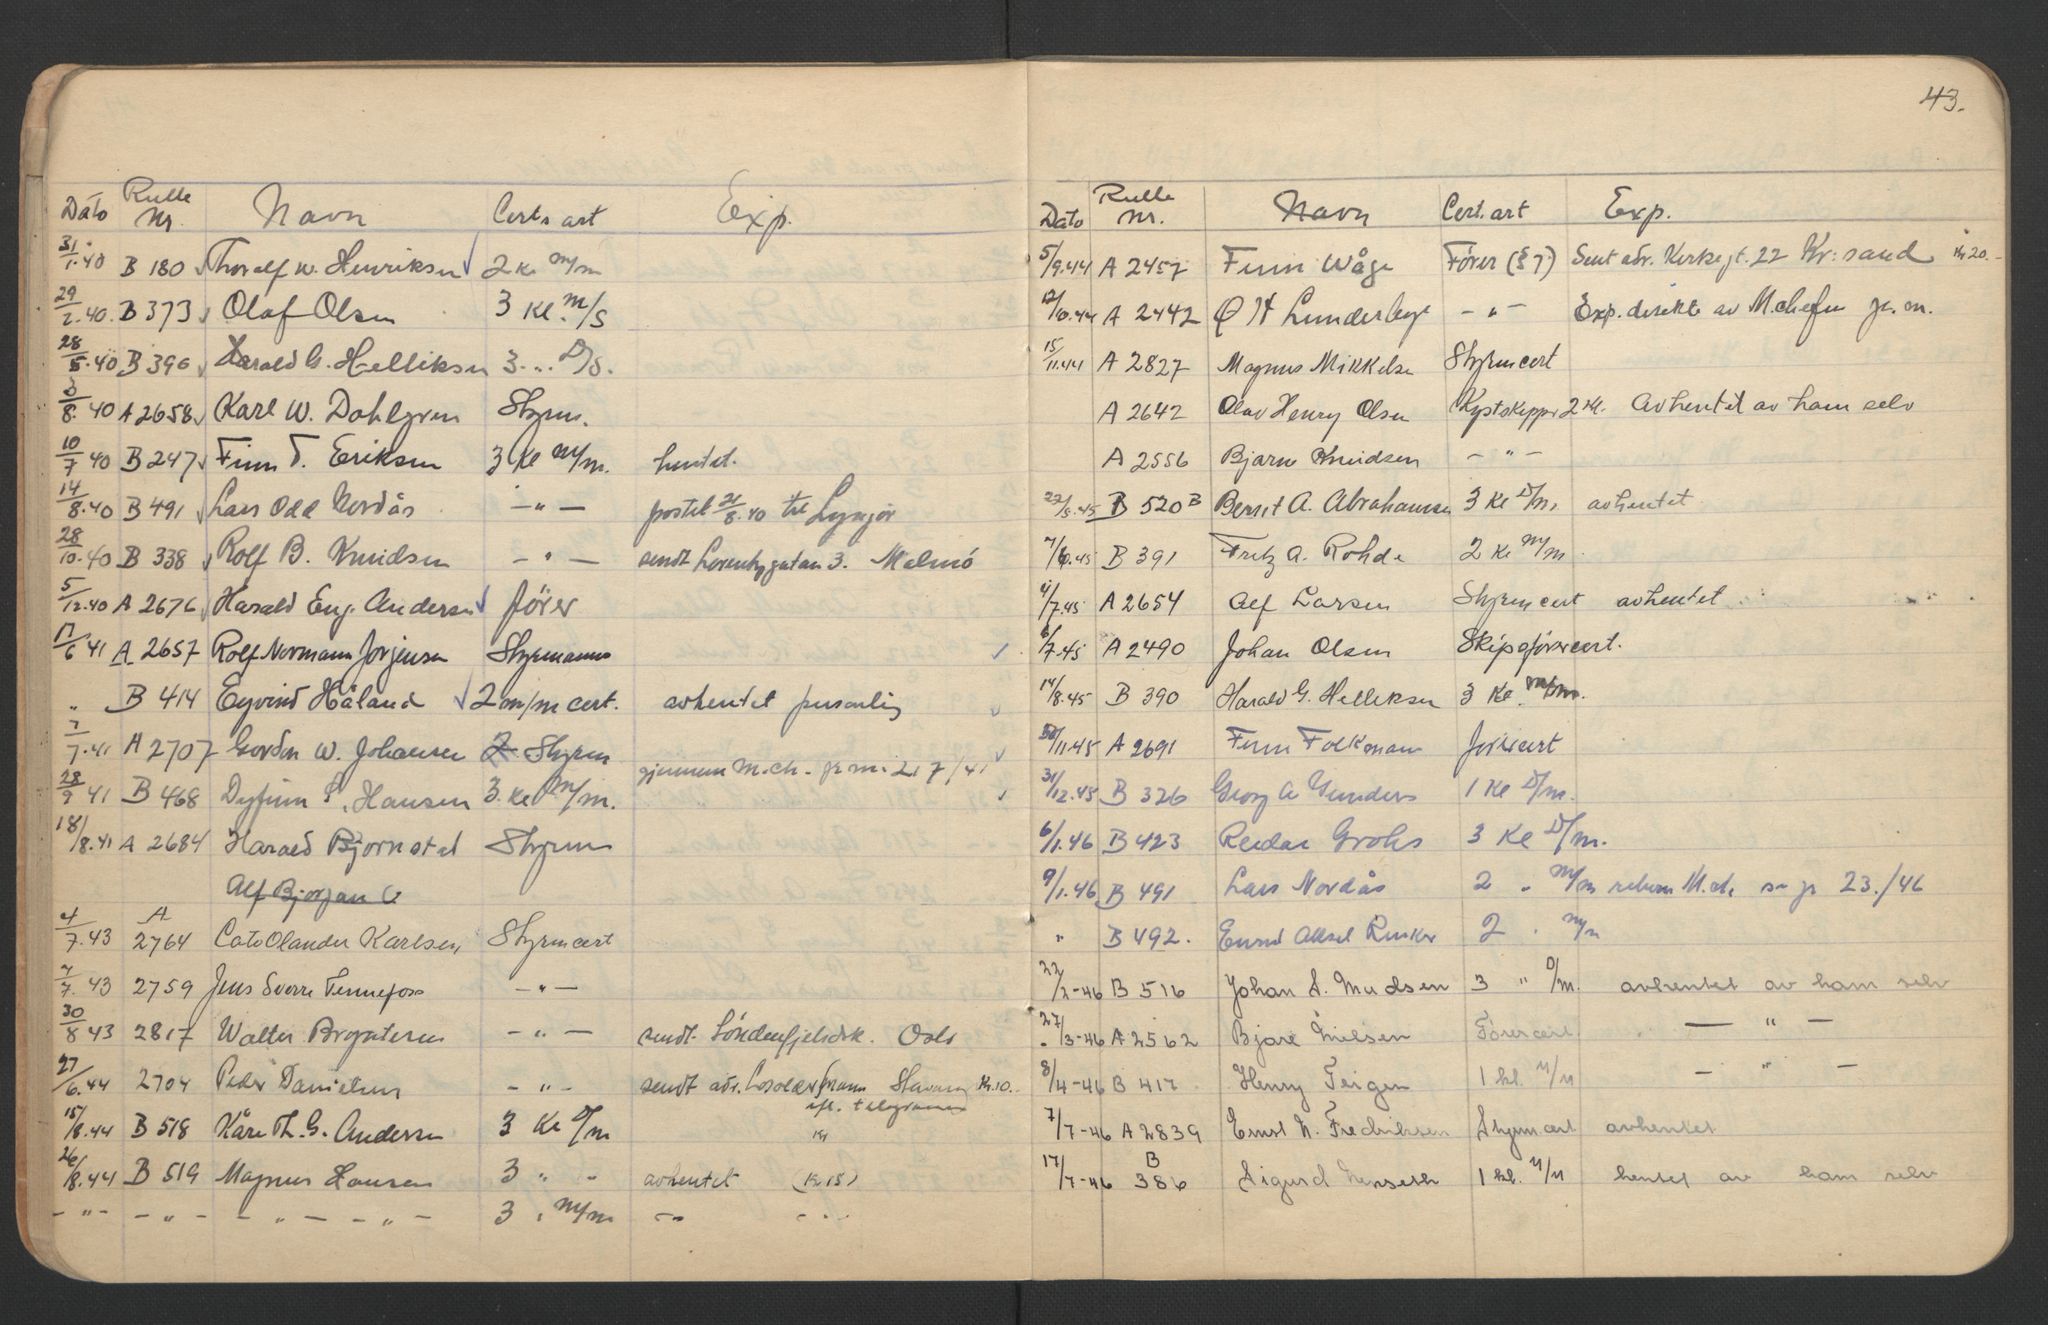 Dato Rulle Nr. Navn Certs art Exp.
31/1.40 B 180 Thoralf W. Henriksen 2 Kl m/m
29/2.40. B 373 Olaf Olsen 3 Kl. m/s
28/5.40 B 396 Harald G. Helliksen 3 . .. D/s.
3/8.40 A 2658 Karl W. Dahlgren Styrm.
10/7 40 B 247 Finn T. Eriksen 3 Kl m/m. hentet.
14/8.40 B 491 Lars Odd Nordås — " — postet 21/8.40 til Lyngør
28/10.40 B 338 Rolf B. Knudsen — " — sendt gatan 3. Malmö
5/12.40 A 2676 Harald Eug. Andersen fører
17/6 41 A 2657 Rolf Normann Jørgensen Styrmanns
" B 414 Eyvind Håland 2 m/m cert. avhentet personlig
7/7.41 A 2707 Gordon W. Johansen Styrm
gjennem M.ch. p.m. 21 7/41
28/9 41 B 468 Dyfinn S. Hansen 3. Kl m/m.
18/8.41 A 2684 Harald Bjørnstad Styrm
Alf
4/7.43 A 2764 Cato Olander Karlsen Styrmcert
7/7. 43 2759 Jens Sverre Tennefoss — " —
30/8 43 2817 Walter — " — sendt Söndenfjelsdsk. Oslo
27/6.44 2704 Peder Danielsen — " — sendt adr. Stavang Kr. 10.-
efl. telegramm
15/8.44 B 518 Kåre Th. G. Andersen 3 Kl D/m
26/8.44 B 519 Magnus Hansen 3 " - avhentet (Kr 15)
— " — — " — — " — — " — 3 " m/m — " —
43.
Dato Rulle Nr. Navn Cert. art Exp.
5/9.44 A 2457 Finn Wåge Fører (§ 7) Sent adr. Kirkegt. 22 Kr:sand Kr 20.-
12/10.44 A 2442 O H Lunder — " — Exp. direkte av M.chefen p. m.
15/11.44 A 2827 Magnus Mikkelsen Styrmcert
A 2642 Olav Henry Olsen Kystskipper 2 Kl. Avhentet av ham selv
A 2556 Bjarne Knudsen — " —
22/5.45 B 520 B Bernt A. Abrahamsen 3 Kl D/m. avhentet
7/6.45 B 391 Fritz A. Rohde 2 Kl m/m
4/7.45 A 2654 Alf Larsen Styrmcert avhentet
6/7.45 A 2490 Johan Olsen Skipsførercert.
14/8.45 B 390 Harald G. Helliksen 3 Kl. m/m.
30/11.45 A 2691 Finn Folkmann førercert
31/12.45 B 326 Georg A Gunders 1 Kl D/m.
6/1.46 B 423 Reidar Grohs 3 Kl D/m.
9/1.46 B 491 Lars Nordås 2 " m/m M.ch. 23./46
" B 492. Aksel 2 " m/m
22/2-46 B 516 Johan S. 3 " D/m. avhentet av ham selv
27/3-46 A 2562 Bjarne Nielsen Førercert — " —
8/4-46 B 417 Henry Feigen 1 kl. M/M — " —
7/7-46 A 2839 Ernst N. Fredriksen Styrmcert avhentet
17/7-46 B 386 Sigurd 1 kl. M/M hentet av ham selv